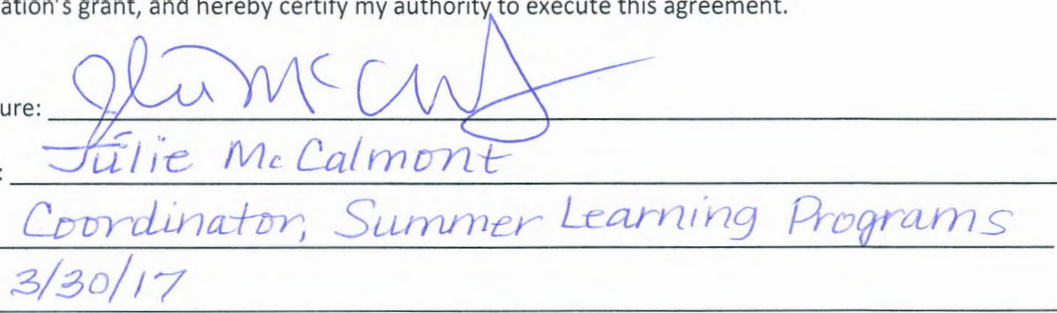 ation's grant, and hereby certify my authority to execute this agreement.
ure: Julie McCalmont
: Julie McCalmont
Coordinator, Summer Learning Programs
3/30/17